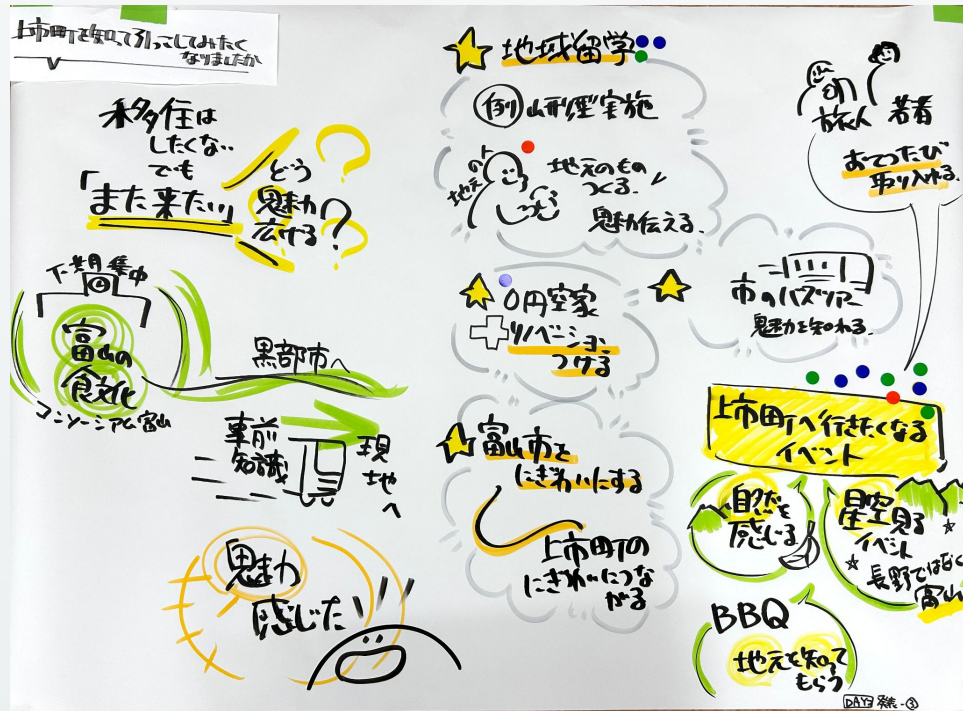 上市町を知って引っこしてみたく
なりましたか
移住は
したくない
でも
「また来たい」
どう
魅力
広げる?
下期集中
富山の
食文化
コンソーシアム富山
黒部市へ
事前
知識
現地へ
魅力
感じた
地域留学
例 山形型実施
地元の
地元のもの
つくる
魅力伝える。
0円空家
リノベーション
つける
富山市を
にぎわいにする
上市町の
にぎわいにつな
がる
市のバスツアー
魅力を知れる。
旅人
若者
おてつたび
取り入れる。
上市町へ行きたくなる
イベント
自然を
感じる
星空見る
イベント
長野ではなく
富山
BBQ
地元を知って
もらう
DAY3 発表-③